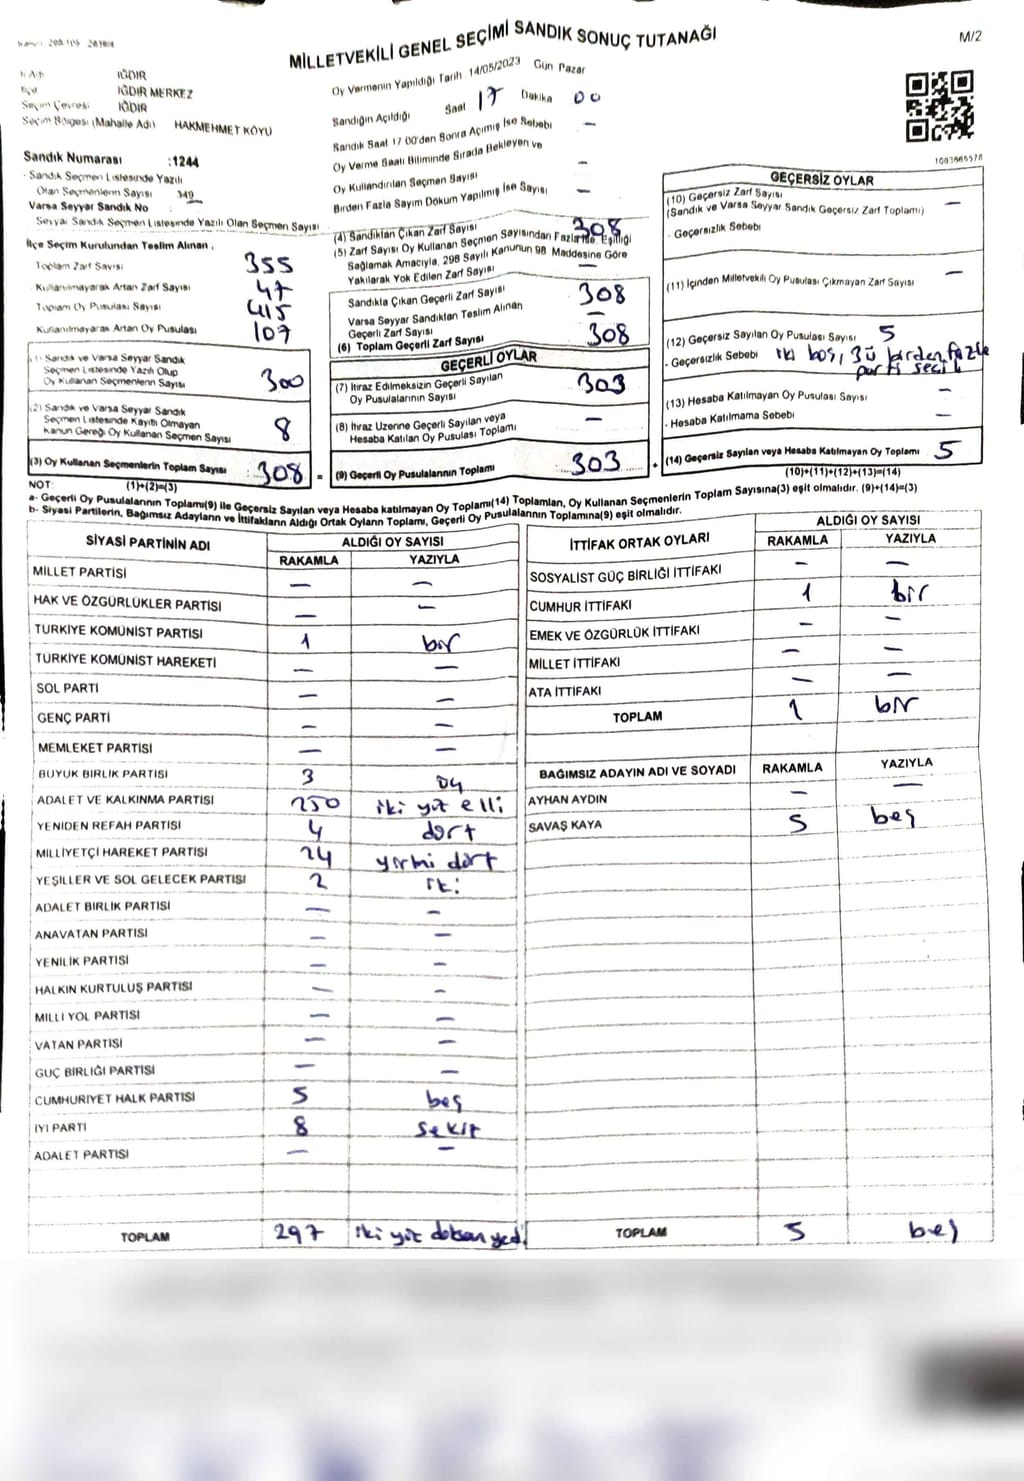 MİLLETVEKİLİ GENEL SEÇİMİ SANDIK SONUÇ TUTANAĞI
M/2
İl Adı IĞDIR
İlçe IĞDIR MERKEZ
Seçim Çevresi IĞDIR
Seçim Bölgesi (Mahalle Adı) HAKMEHMET KÖYÜ
Oy Vermenin Yapıldığı Tarih 14/05/2023 Gün Pazar
Sandığın Açıldığı Saat 17 Dakika 00
Sandık Saat 17 00'den Sonra Açımış İse Sebebi –
Oy Verme Saati Bitiminde Sırada Bekleyen ve
Oy Kullandırılan Seçmen Sayısı –
Birden Fazla Sayım Döküm Yapılmış İse Sayısı –
1083665578
Sandık Numarası :1244
- Sandık Seçmen Listesinde Yazılı
Olan Seçmenlerin Sayısı 349
Varsa Seyyar Sandık No –
Seyyar Sandık Seçmen Listesinde Yazılı Olan Seçmen Sayısı
İlçe Seçim Kurulundan Teslim Alınan :
Toplam Zarf Sayısı 355
Kullanılmayarak Artan Zarf Sayısı 47
Toplam Oy Pusulası Sayısı 415
Kullanılmayarak Artan Oy Pusulası 107
(1) Sandık ve Varsa Seyyar Sandık
Seçmen Listesinde Yazılı Olup
Oy Kullanan Seçmenlerin Sayısı 300
(2) Sandık ve Varsa Seyyar Sandık
Seçmen Listesinde Kayıtlı Olmayan
Kanun Gereği Oy Kullanan Seçmen Sayısı 8
(3) Oy Kullanan Seçmenlerin Toplam Sayısı 308
(4) Sandıktan Çıkan Zarf Sayısı 308
(5) Zarf Sayısı Oy Kullanan Seçmen Sayısından Fazla İse, Eşitliği
Sağlamak Amacıyla, 298 Sayılı Kanunun 98 Maddesine Göre
Yakılarak Yok Edilen Zarf Sayısı –
Sandıkta Çıkan Geçerli Zarf Sayısı 308
Varsa Seyyar Sandıktan Teslim Alınan
Geçerli Zarf Sayısı –
(6) Toplam Geçerli Zarf Sayısı 308
GEÇERLİ OYLAR
(7) İtiraz Edilmeksizin Geçerli Sayılan
Oy Pusulalarının Sayısı 303
(8) İtiraz Üzerine Geçerli Sayılan veya
Hesaba Katılan Oy Pusulası Toplamı –
= (9) Geçerli Oy Pusulalarının Toplamı 303
GEÇERSİZ OYLAR
(10) Geçersiz Zarf Sayısı –
(Sandık ve Varsa Seyyar Sandık Geçersiz Zarf Toplamı)
- Geçersizlik Sebebi
(11) İçinden Milletvekili Oy Pusulası Çıkmayan Zarf Sayısı –
(12) Geçersiz Sayılan Oy Pusulası Sayısı 5
- Geçersizlik Sebebi iki boş, 3ü birden fazla
parti seçili
(13) Hesaba Katılmayan Oy Pusulası Sayısı –
- Hesaba Katılmama Sebebi –
+ (14) Geçersiz Sayılan veya Hesaba Katılmayan Oy Toplamı 5
NOT: (1)+(2)=(3)
(10)+(11)+(12)+(13)=(14)
a- Geçerli Oy Pusulalarının Toplamı(9) ile Geçersiz Sayılan veya Hesaba katılmayan Oy Toplamı(14) Toplamları, Oy Kullanan Seçmenlerin Toplam Sayısına(3) eşit olmalıdır. (9)+(14)=(3)
b- Siyasi Partilerin, Bağımsız Adayların ve İttifakların Aldığı Ortak Oyların Toplamı, Geçerli Oy Pusulalarının Toplamına(9) eşit olmalıdır.
SİYASİ PARTİNİN ADI ALDIĞI OY SAYISI
RAKAMLA YAZIYLA
MİLLET PARTİSİ – –
HAK VE ÖZGÜRLÜKLER PARTİSİ – –
TÜRKİYE KOMÜNİST PARTİSİ 1 bir
TÜRKİYE KOMÜNİST HAREKETİ – –
SOL PARTİ – –
GENÇ PARTİ – –
MEMLEKET PARTİSİ – –
BÜYÜK BİRLİK PARTİSİ 3 üç
ADALET VE KALKINMA PARTİSİ 250 iki yüz elli
YENİDEN REFAH PARTİSİ 4 dört
MİLLİYETÇİ HAREKET PARTİSİ 24 yirmi dört
YEŞİLLER VE SOL GELECEK PARTİSİ 2 iki
ADALET BİRLİK PARTİSİ – –
ANAVATAN PARTİSİ – –
YENİLİK PARTİSİ – –
HALKIN KURTULUŞ PARTİSİ – –
MİLLİ YOL PARTİSİ – –
VATAN PARTİSİ – –
GÜÇ BİRLİĞİ PARTİSİ – –
CUMHURİYET HALK PARTİSİ 5 beş
İYİ PARTİ 8 sekiz
ADALET PARTİSİ – –
TOPLAM 297 iki yüz doksan yedi
İTTİFAK ORTAK OYLARI ALDIĞI OY SAYISI
RAKAMLA YAZIYLA
SOSYALİST GÜÇ BİRLİĞİ İTTİFAKI – –
CUMHUR İTTİFAKI 1 bir
EMEK VE ÖZGÜRLÜK İTTİFAKI – –
MİLLET İTTİFAKI – –
ATA İTTİFAKI – –
TOPLAM 1 bir
BAĞIMSIZ ADAYIN ADI VE SOYADI RAKAMLA YAZIYLA
AYHAN AYDIN – –
SAVAŞ KAYA 5 beş
TOPLAM 5 beş